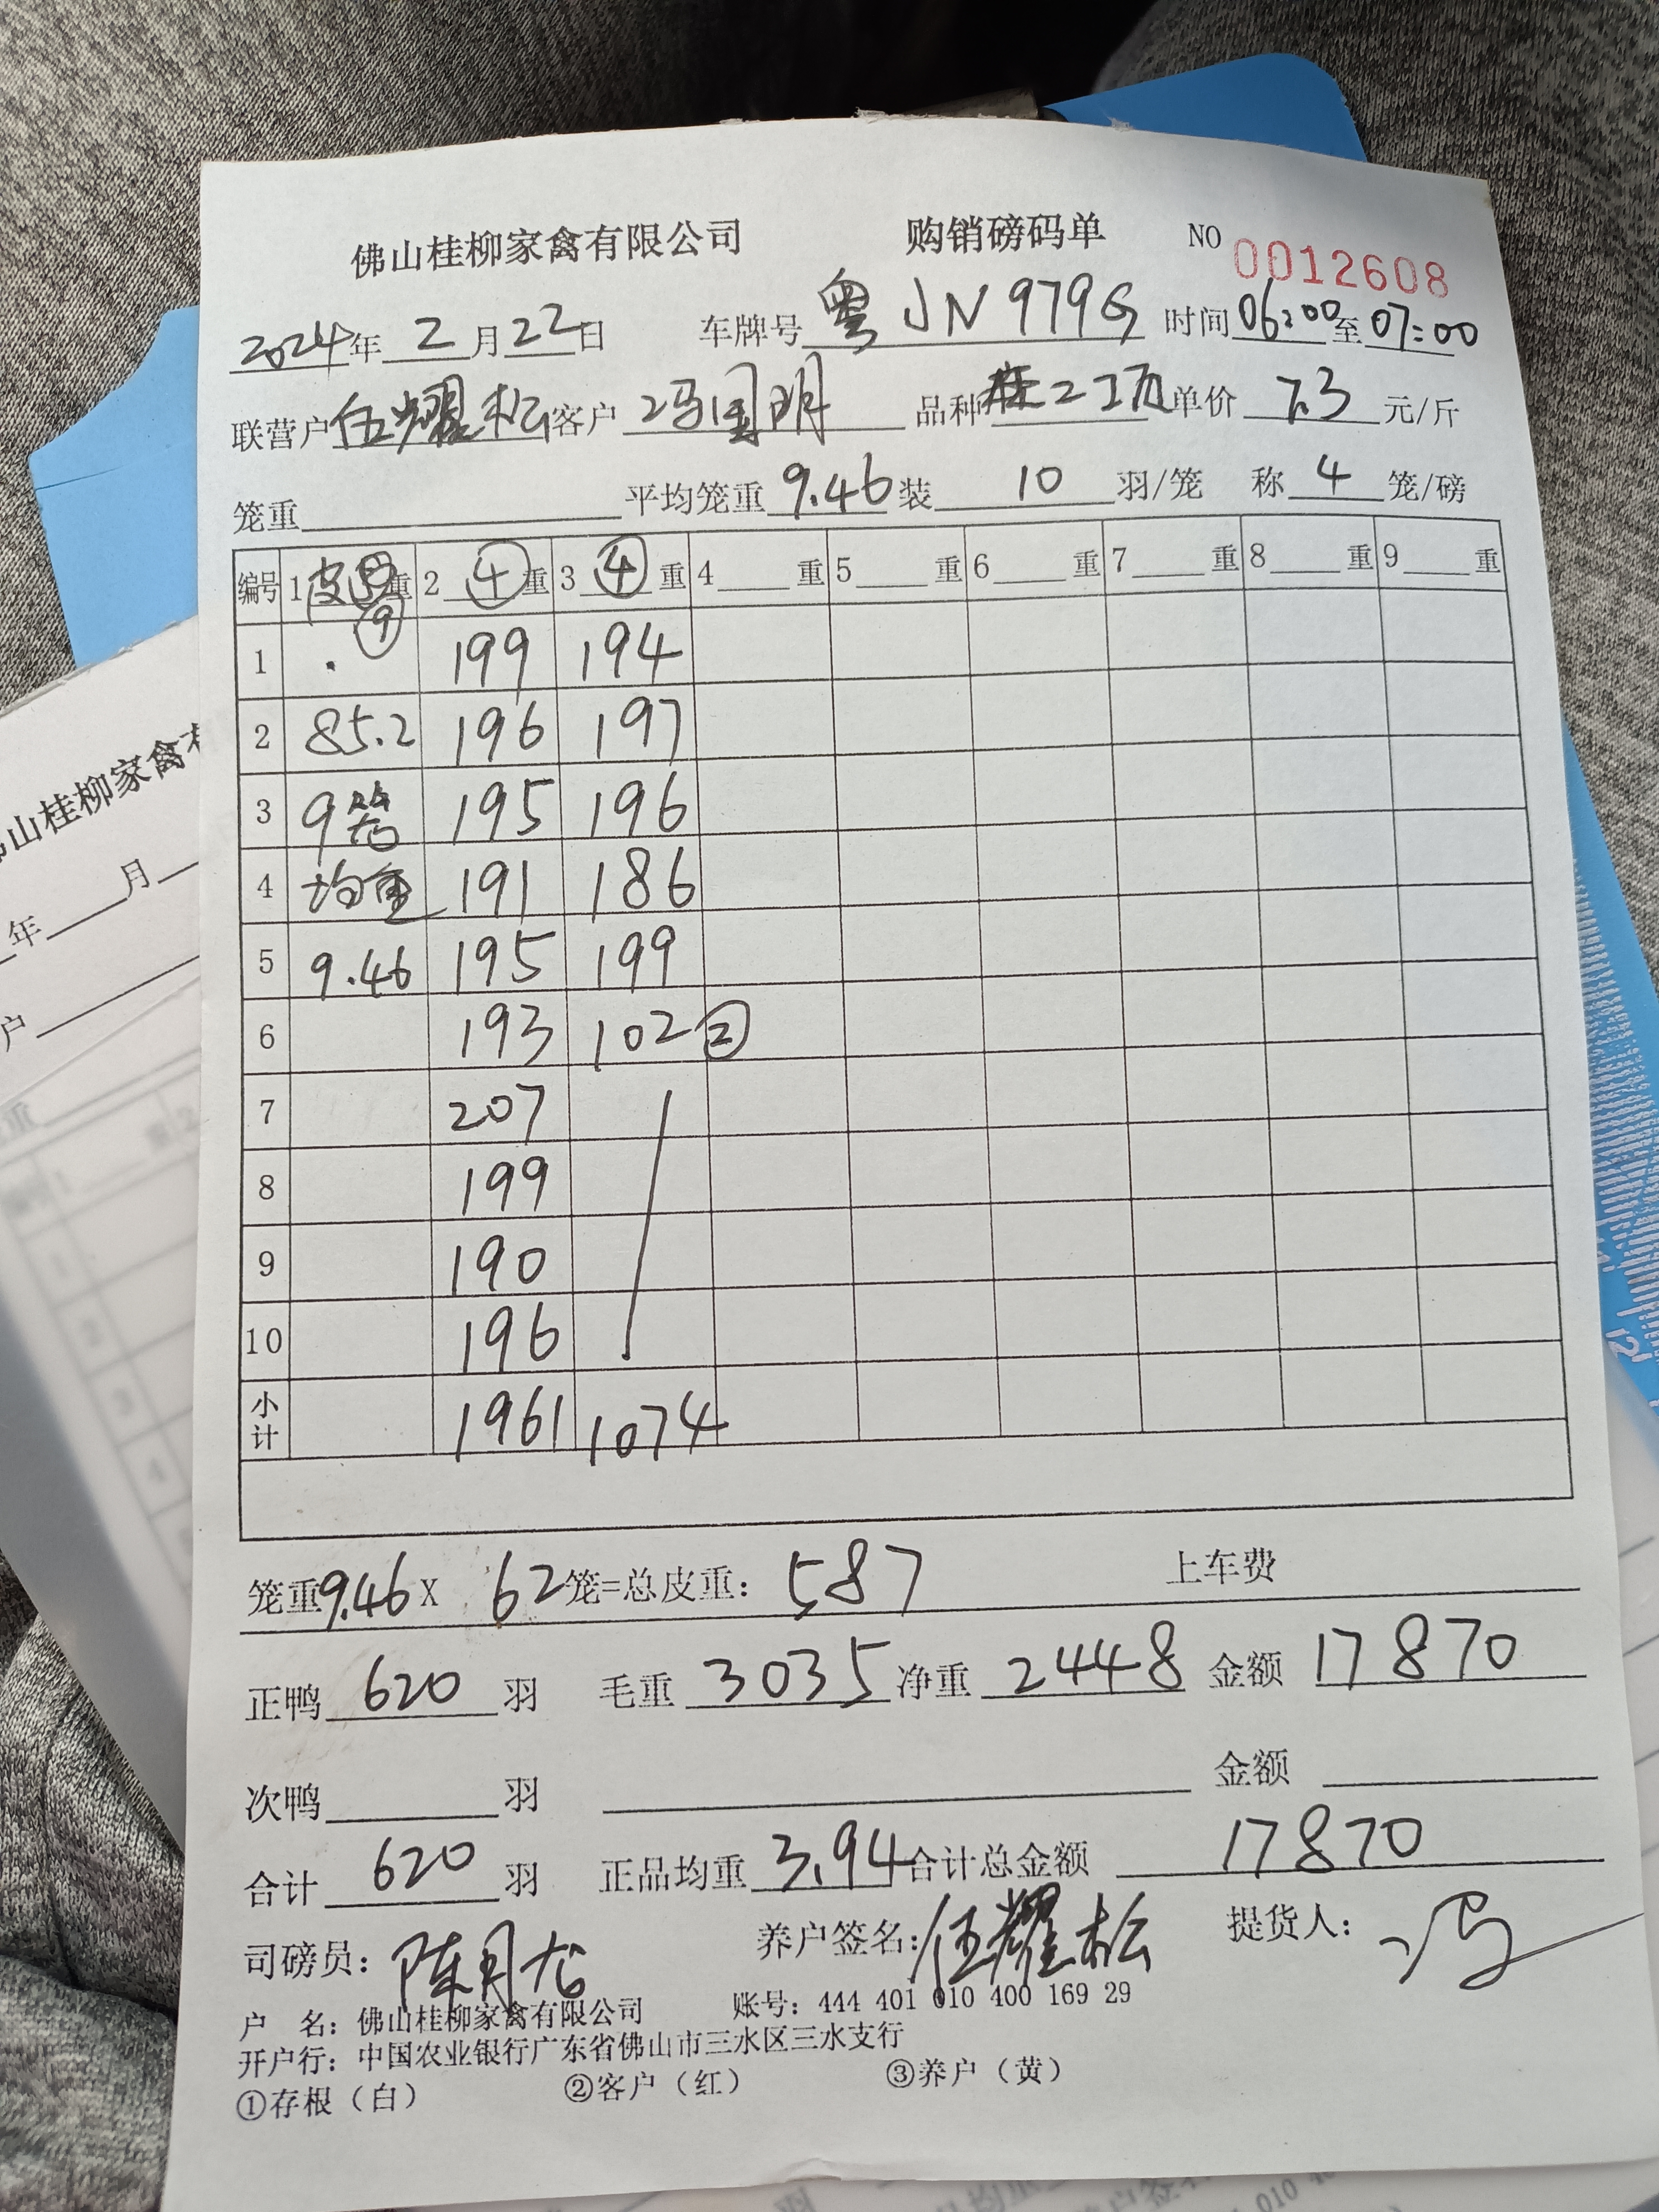 佛山桂柳家禽有限公司 购销磅码单 NO 0012608
2024年 2 月 22 日 车牌号 粤JN979G 时间 06:00 至 07:00
联营户 伍耀松 客户 冯国明 品种 单价 7.3 元/斤
笼重 平均笼重 9.46 装 10 羽/笼 称 4 笼/磅
编号 1 皮 重 2 ④ 重 3 ④ 重 4 重 5 重 6 重 7 重 8 重 9 重
1 . ⑨ 199 194
2 85.2 196 197
3 9 195 196
4 均重 191 186
5 9.46 195 199
6 193 102 ②
7 207
8 199
9 190
10 196
小计 1961 1074
笼重 9.46 X 62 笼=总皮重: 587 上车费
正鸭 620 羽 毛重 3035 净重 2448 金额 17870
次鸭 羽 金额
合计 620 羽 正品均重 3.94 合计总金额 17870
司磅员: 陈月 养户签名: 伍耀松 提货人: 冯
户 名: 佛山桂柳家禽有限公司 账号: 444 401 010 400 169 29
开户行: 中国农业银行广东省佛山市三水区三水支行
①存根（白） ②客户（红） ③养户（黄）
山桂柳家禽
年 月
户